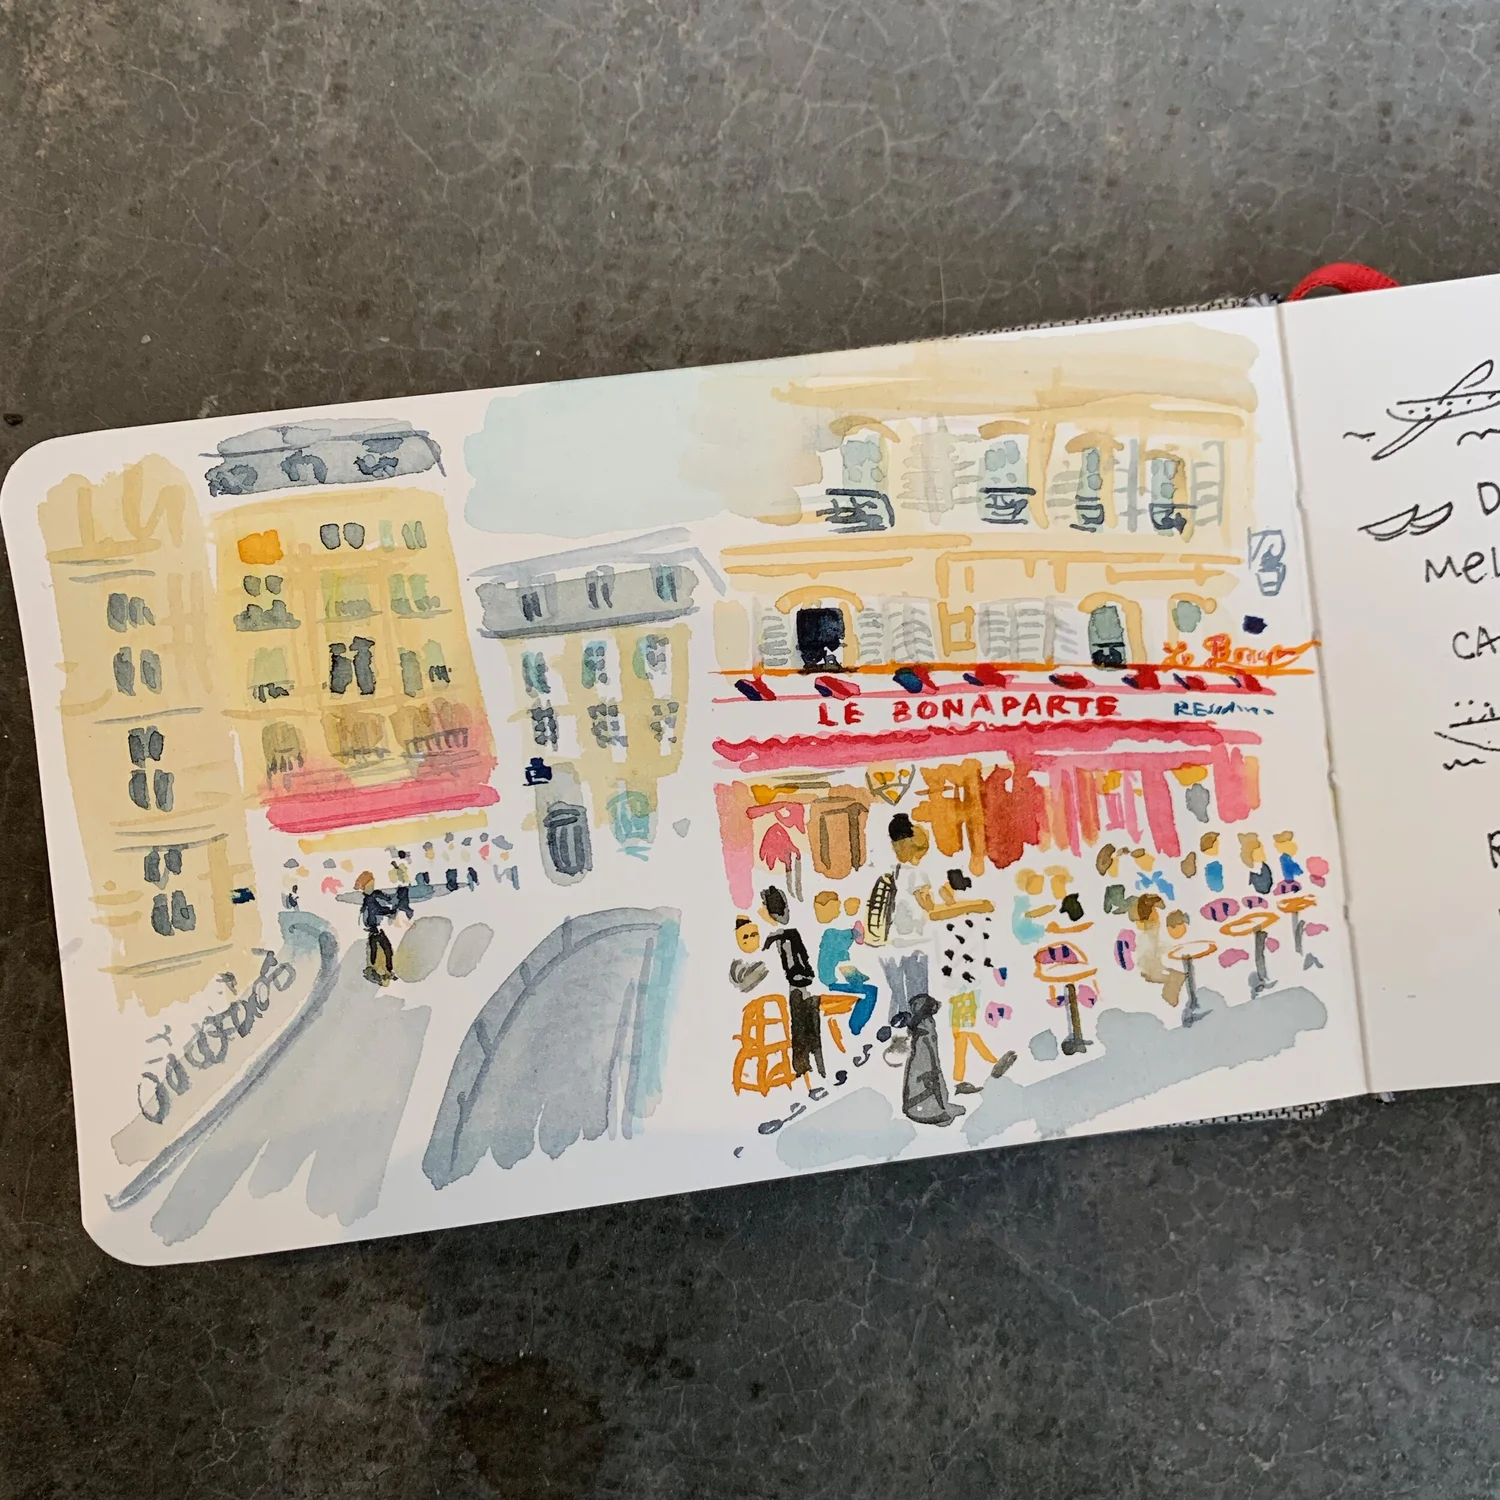 Le Bonap
LE BONAPARTE
D
MEL
CA
R